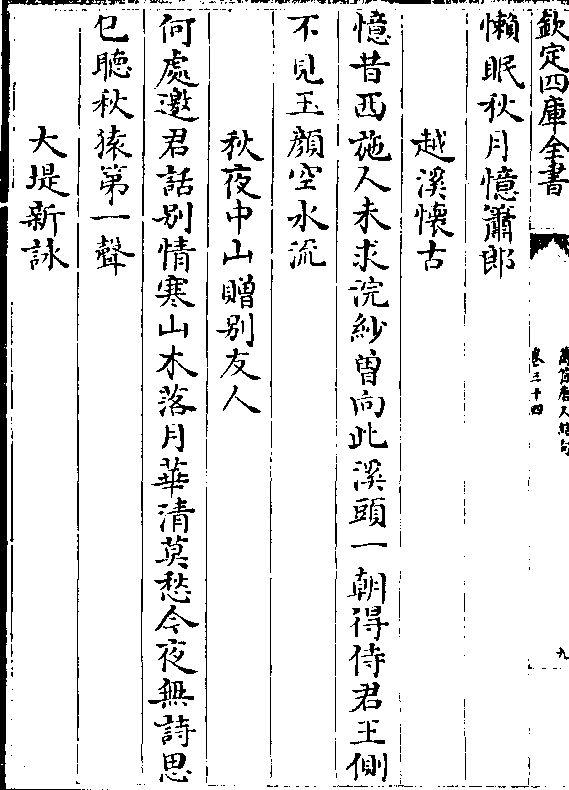 欽定四庫全書
萬首唐人絶句
卷三十四
九
懶眠秋月憶蕭郎
越溪懷古
憶昔西施人未求浣紗曽向此溪頭一朝得侍君王側
不見玉顔空水流
秋夜中山贈别友人
何處邀君話别情寒山木落月華清莫愁今夜無詩思
已聽秋猿第一聲
大堤新詠